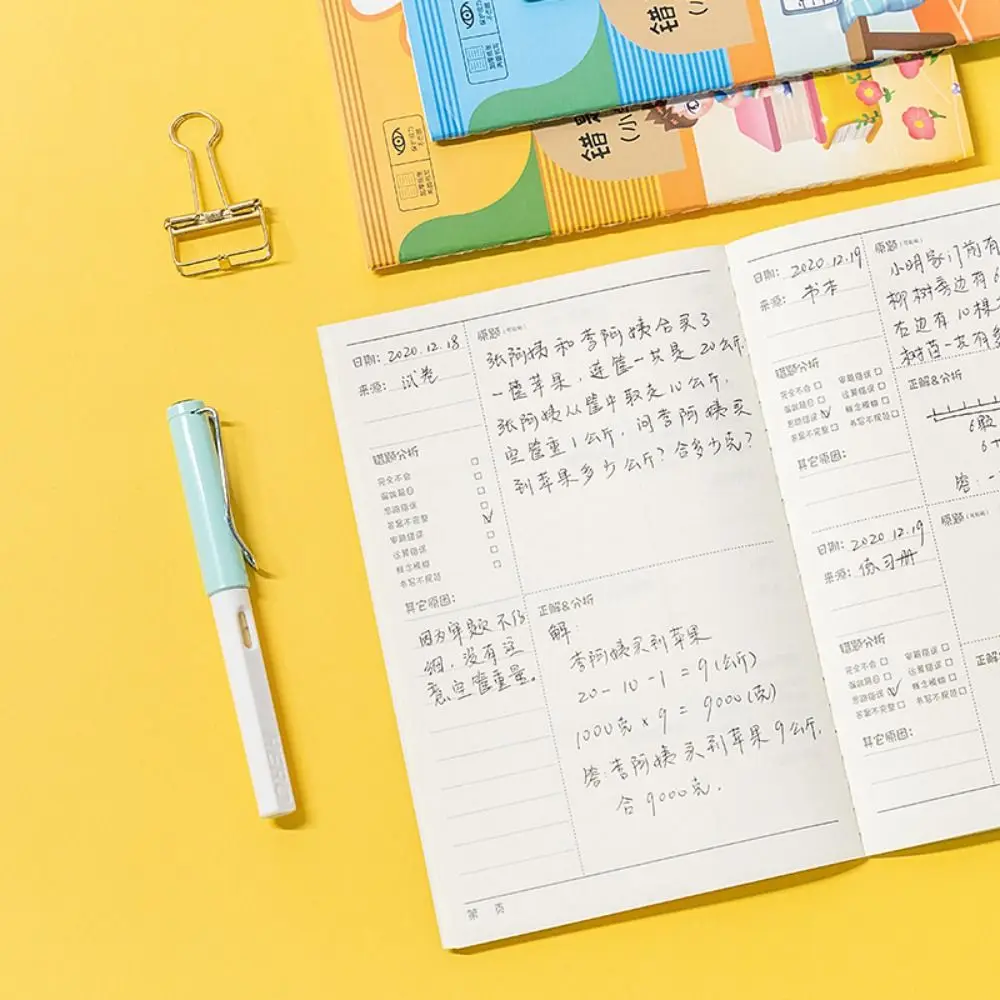 保护视力
不反光
加厚纸张
两面书写
错
(小
保护视力
不反光
加厚纸张
两面书写
错
(小
日期: 2020.12.18
来源: 试卷
错题分析
完全不会
偏鼓题目
思路错误
答案不完整
审题错误
运算错误
概念模糊
书写不规范
其它原因:
因为审题不仔
细,没有注
意空筐重量。
原题
张阿姨和李阿姨合买了
一筐苹果,连筐一共是20公斤,
张阿姨从筐中取走10公斤,
空筐重1公斤,问李阿姨买
到苹果多少公斤?合多少克?
正解&分析
解:
李阿姨买到苹果
20-10-1=9(公斤)
1000克×9=9000(克)
答:李阿姨买到苹果9公斤,
合9000克.
第 页
日期: 2020.12.19
来源: 书本
错题分析
完全不会 审题错误
运算错误
思路错误 概念模糊
答案不完整 书写不规范
其它原因:
原题
小明家门前有
柳树旁边有6
右边有10棵
树苗一共有多
正解&分析
6颗
6+
答:一
日期: 2020.12.19
来源: 练习册
错题分析
完全不会 审题错误
运算错误
思路错误 概念模糊
答案不完整 书写不规范
其它原因:
原题
正解